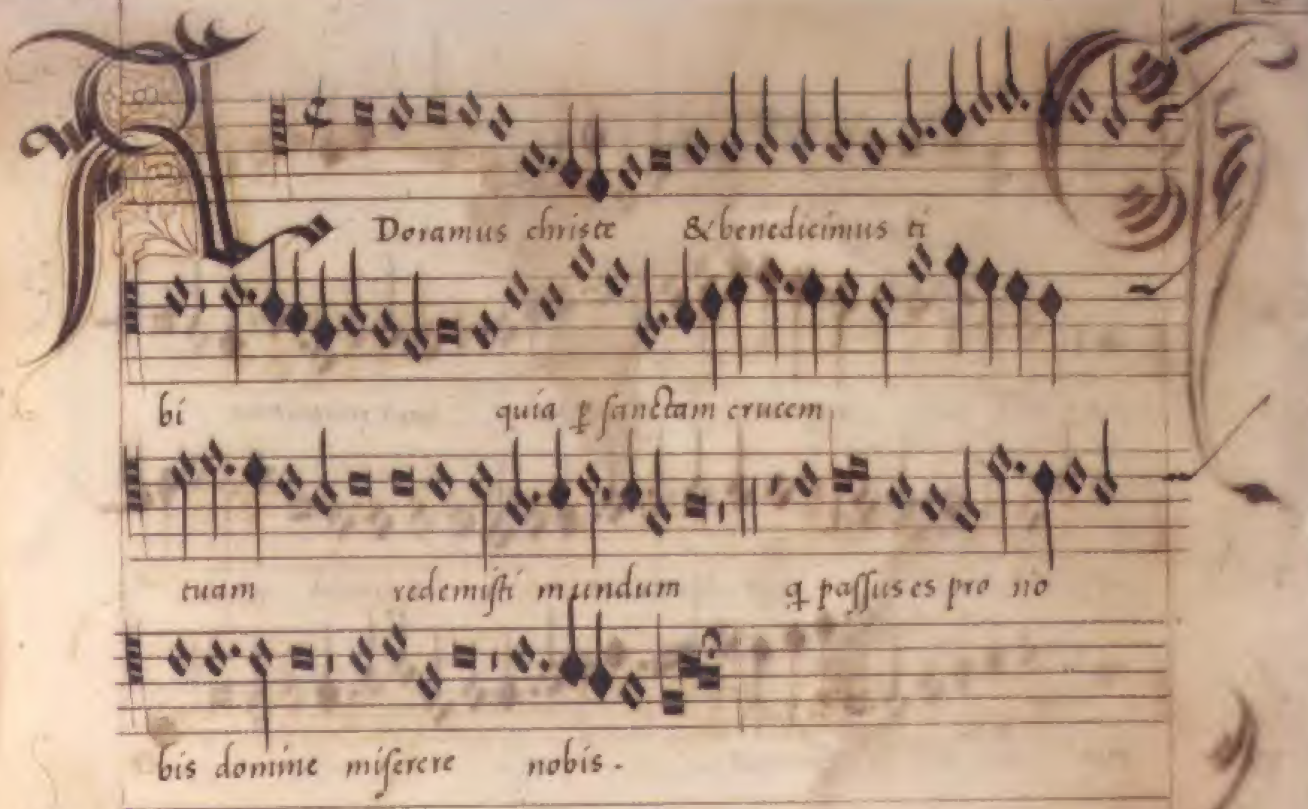 ADoramus christe & benedicimus ti
bi quia p̱ sanctam crucem
tuam redemisti mundum q̱ passus es pro no
bis domine miserere nobis.